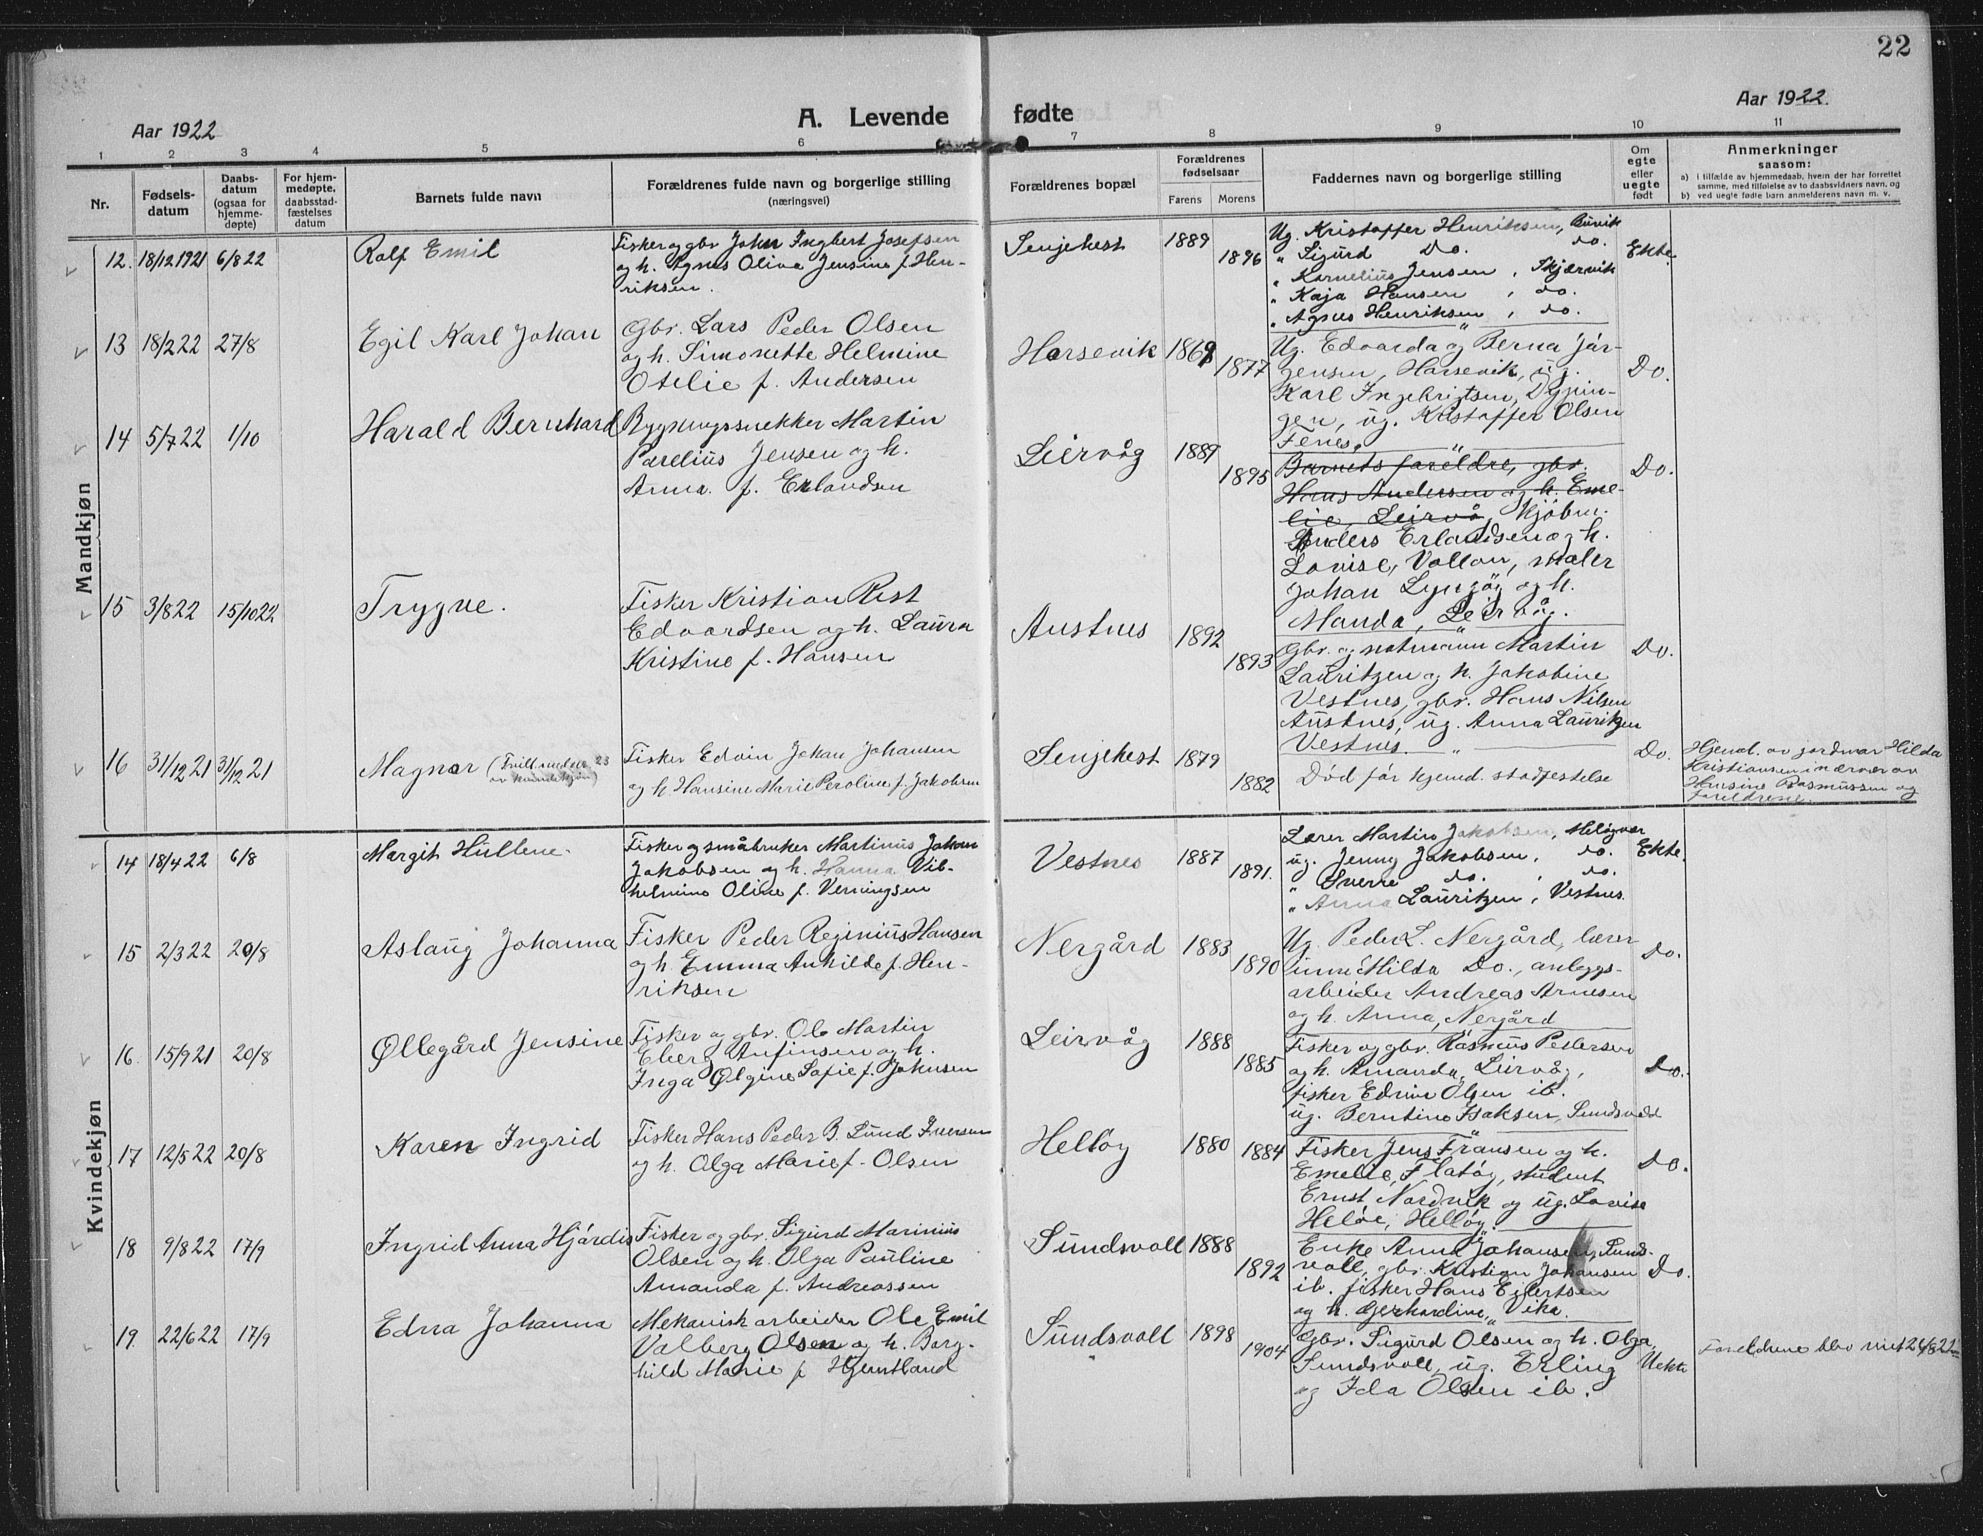 22
Aar 1922
A. Levende fødte
Aar 1922.
1 2 3 4 5 6 7 8 9 10 11
Nr.
Fødsels-
datum
Daabs-
datum
(ogsaa for
hjemme-
døpte)
For hjem-
medøpte,
daabsstad-
fæstelses
datum
Barnets fulde navn
Forældrenes fulde navn og borgerlige stilling
(næringsvei)
Forældrenes bopæl
Forældrenes
fødselsaar
Farens Morens
Faddernes navn og borgerlige stilling
Om
egte
eller
uegte
født
Anmerkninger
saasom:
a) i tilfælde av hjemmedaab, hvem der har forrettet
samme, med tilføielse av to daabsvidners navn, og
b) ved uegte fødte barn anmelderens navn m. v.
Mandkjøn
12. 18/12 1921 6/8 22
Rolf Emil
Fisker og gbr John Ingbert Josefsen
og h. Agnes Oliva Jensine f. Hen-
riksen.
Senjehest 1889 1896
Ug. Kristoffer Henriksen, Burvik
" Sigurd Do. do.
" Kornelius Jensen, Skjærvik
" Kaja Hansen, do.
" Agnes Henriksen, do.
Ekte
13 18/2 22 27/8
Egil Karl Johan
Gbr. Lars Peder Olsen
og h. Simonette Helmine
Otelie f. Andersen
Harsevik 1869 1877
Ug. Edvarda og Berna Jør-
gensen, Harsevik, ug.
Karl Ingebrigtsen, Dypin-
gen, ug. Kristoffer Olsen
Fenes.
Do.
14 5/7 22 1/10
Harald Bernhard
Bygningssnekker Martin
Parelius Jensen og h.
Anna f. Erlandsen
Leirvåg 1889 1895
Barnets foreldre, gbr.
Hans Andersen og h. Eme-
lie, Leirvåg, kjøbm.
Anders Erlandsen og h.
Lovise, Vallan, maler
Johan Lyngøy og h.
Manda, Leirvåg.
Do.
15 3/8 22 15/10 22
Trygve.
Fisker Kristian Rist
Edvardsen og h. Laura
Kristine f. Hansen
Austnes 1892 1893
Gbr. og notmann Martin
Lauritzen og h. Jakobine
Vestnes, gbr. Hans Nilsen
Austnes, ug. Anna Lauritzen
Vestnes.
Do.
16 31/12 21 31/12 21
Magnar (Tvill. med nr. 23
av kvindekjøn)
Fisker Edvin Johan Johansen
og h. Hansine Marie Peroline f. Jakobsen
Senjehest 1879 1882
Død før hjemd. stadfestelse
Do.
Hjemd. av jordmor Hilda
Kristiansen i nærvær av
Hansine Rasmussen og
foreldrene.
Kvindekjøn
14 18/4 22 6/8
Margit Hullene.
Fisker og småbruker Martinus Johan
Jakobsen og h. Hanna Vil-
helmine Oline f. Verningsen
Vestnes 1887 1891.
Lærer Martin Jakobsen, Meløyvær
ug. Jenny Jakobsen, do.
" Sverre do. , do.
" Anna Lauritzen, Vestnes.
Ekte.
15 2/3 22 20/8
Aslaug Johanna
Fisker Peder Reginius Hansen
og h. Emma Anhilde f. Hen-
riksen
Nergård 1883 1890
Ug. Peder L. Nergård, lærer-
inne Milda Do., anleggs-
arbeider Andreas Arnesen
og h. Anna, Nergård
Do.
16. 15/9 21 20/8
Øllegård Jensine
Fisker og gbr. Ole Martin
Eberg Anfinsen og h.
Inga Ølgine Sofie f. Johnsen
Leirvåg 1888 1885
Fisker og gbr. Rasmus Pedersen
og h. Amanda, Leirvåg,
fisker Edvin Olsen ib.
ug. Berntine Isaksen, Sundsvoll
Do.
17 12/5 22 20/8
Karen Ingrid
Fisker Hans Peder B. Lund Iversen
og h. Olga Marie f. Olsen
Helløy 1880 1884
Fisker Jens Fransen og h.
Emelie, Flatøy, student
Ernst Nordvik og ug. Lovise
Heløe, Helløy.
Do.
18 9/8 22 17/9
Ingrid Anna Hjørdis
Fisker og gbr. Sigurd Marinius
Olsen og h. Olga Pauline
Amanda f. Andreassen
Sundsvoll 1888 1892
Enke Anna Johansen, Sunds-
voll, gbr. Kristian Johansen
ib. fisker Hans Eilertsen
og h. Gerhardine, Vika.
Do.
19. 22/6 22 17/9
Edna Johanna
Mekanisk arbeider Ole Emil
Valberg Olsen og h. Borg-
hild Marie f. Hjemtland
Sundsvoll 1898 1904
Gbr. Sigurd Olsen og h. Olga
Sundsvoll, ug. Erling
og Ida Olsen ib.
Uekte
Foreldrene blev viet 26/8 22